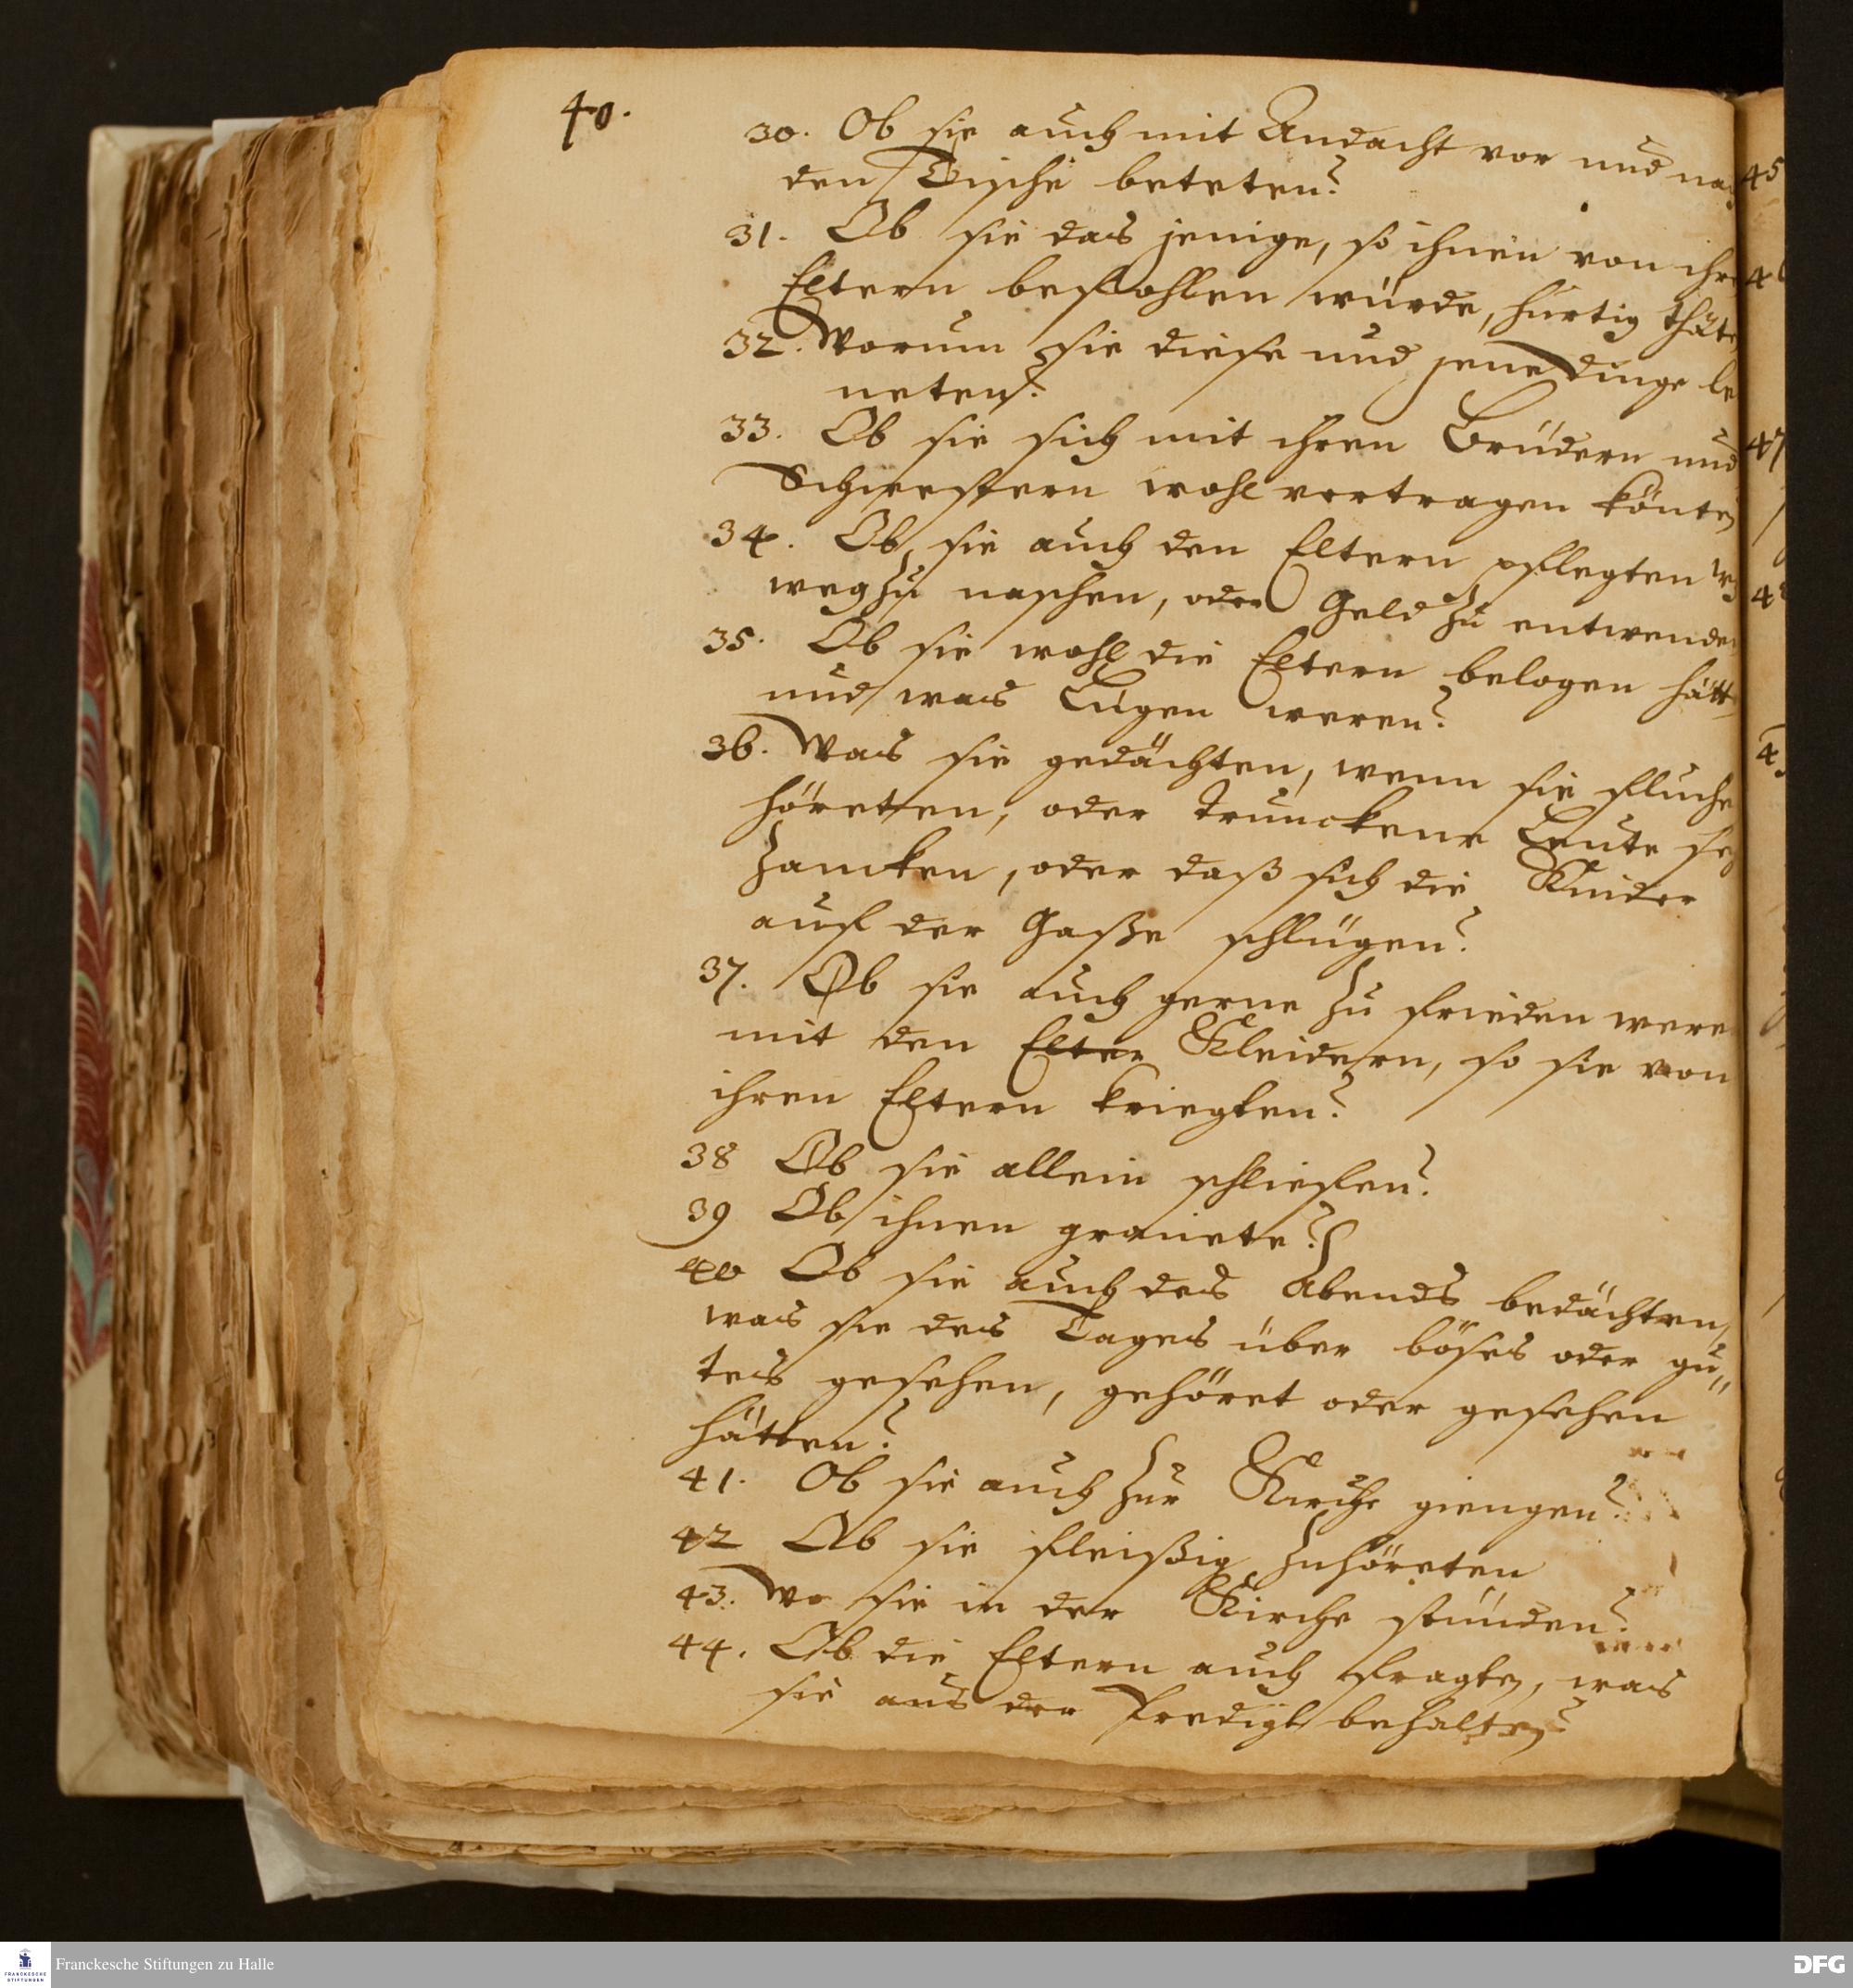 40.
30. Ob sie auch mit Andacht vor und nach
den Tische beteten?
31. Ob sie das jenige, so ihnen von ihren
Eltern befohlen würde, hurtig thäten
32. Worum sie diese und jene dinge ler
neten?
33. Ob sie sich mit ihren Brüdern und
Schwestern wohl vertragen könten
34. Ob sie auch den Eltern pflegten
weg zu naschen, oder Geld zu entwenden
35. Ob sie wohl die Eltern belogen hätt
und was Lügen weren?
36. Was sie gedächten, wenn sie fluchen
höreten, oder trunckene Leute sehn
zancken, oder daß sich die Kinder
auf der Gaße schlügen?
37. Ob sie auch gerne zu frieden were
mit den Elter Kleidern, so sie von
ihren Eltern kriegten?
38 Ob sie allein schlieffen?
39 Ob ihnen grauete?
40 Ob sie auch des Abends bedächten,
was sie des Tages über böses oder gu„
tes gesehen, gehöret oder gesehen
hätten?
41. Ob sie auch zur Kirche giengen?
42 Ob sie fleißig zuhöreten
43. Wo sie in der Kirche stünden?
44. Ob die Eltern auch fragten, was
sie aus der Predigt behalten?
45
47
Franckesche Stiftungen zu Halle
DFG